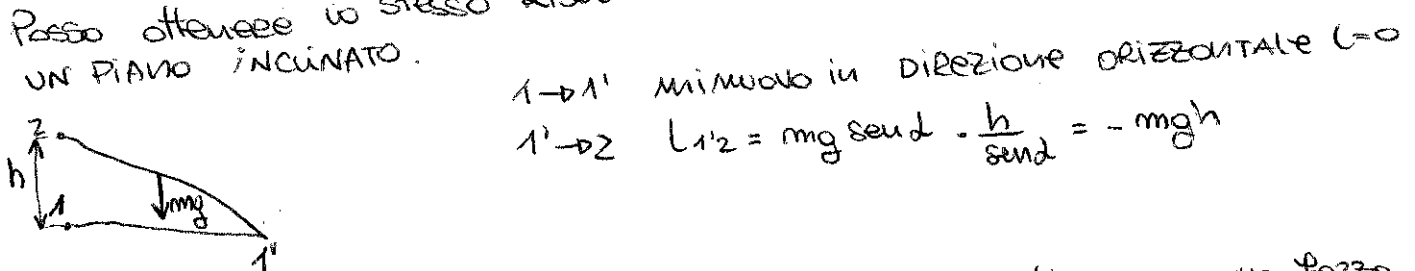 Posso ottenere lo stesso
UN PIANO INCLINATO.
1→1' mi muovo in DIREZIONE ORIZZONTALE L=0
1'→2 L1'2 = mg sen α · h/sen α = - mgh
2
h
1
mg
1'